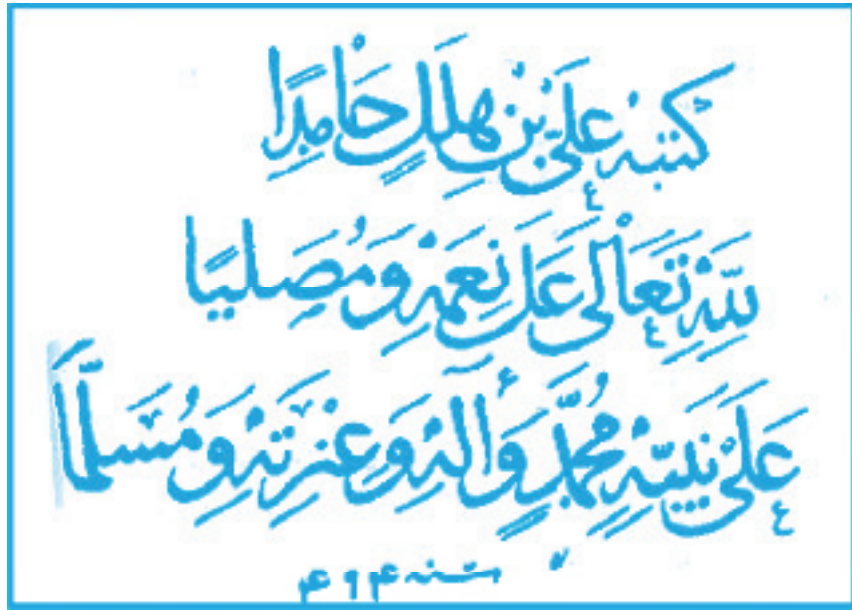 كتبه عَلَيّ بْن هِلَلٍ حَامِدًا
لِلّٰهِ تَعَالَى عَلَى نِعَمِهِ وَمُصَلِيًا
عَلَى نَبِيِّهِ مُحَمَّدٍ وَآلِهِ وَعِتْرَتِهِ وَمُسَلِّمًا
سنه ۴۹۴